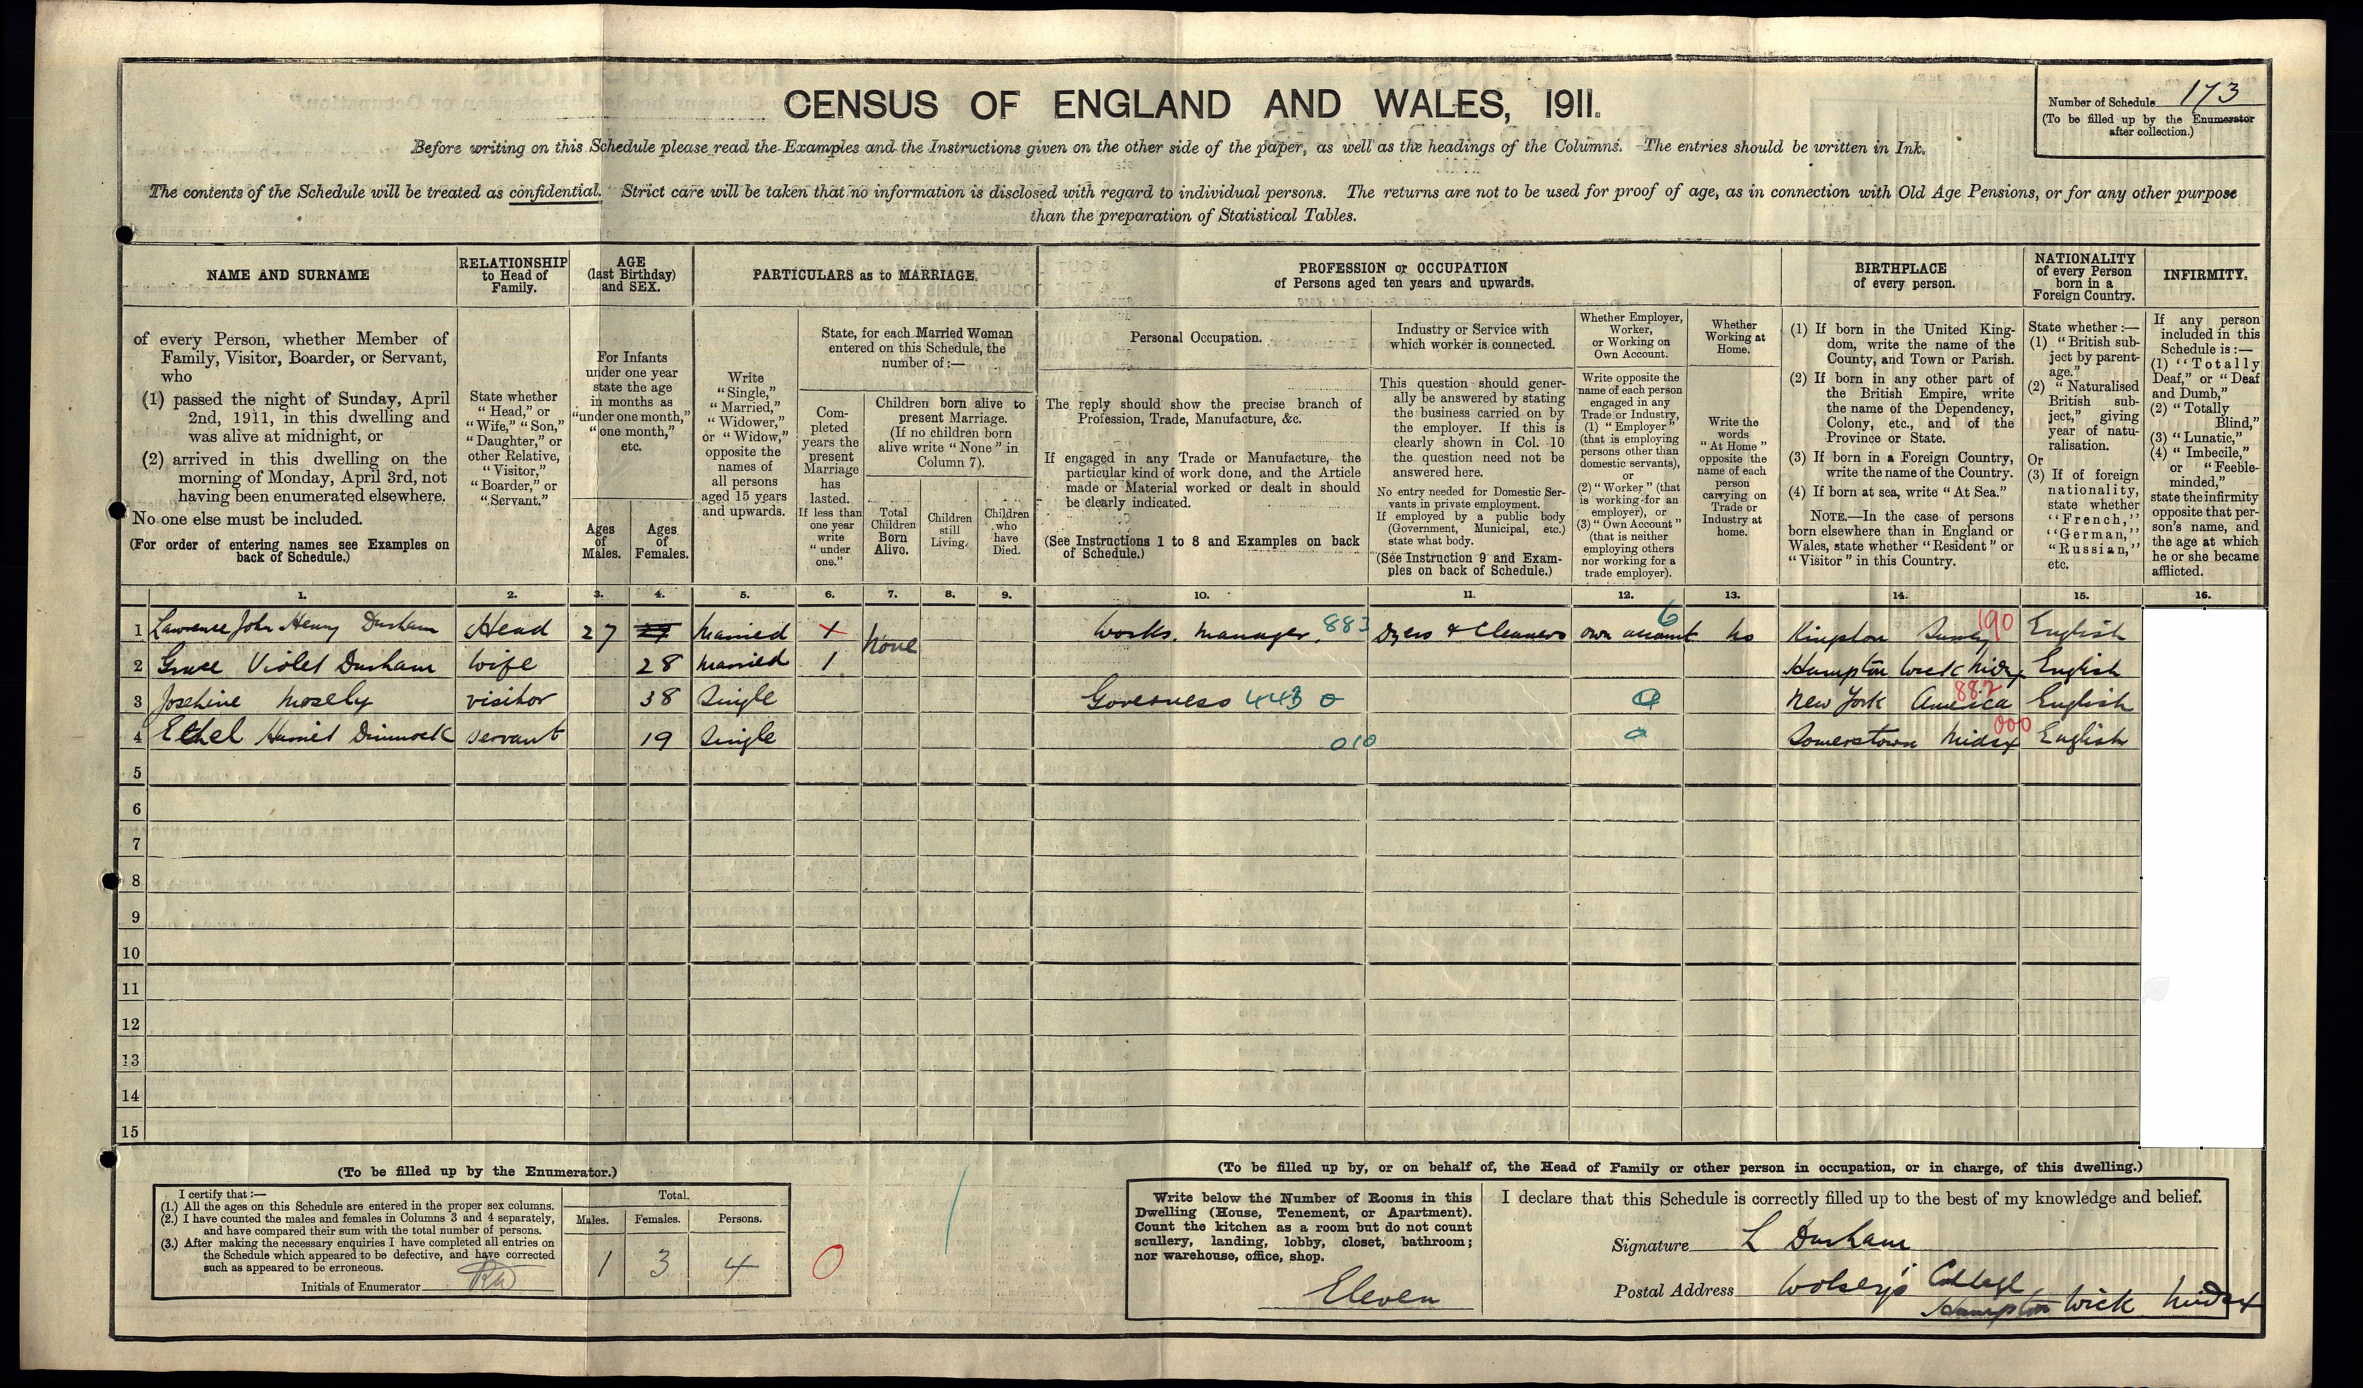 CENSUS OF ENGLAND AND WALES, 1911.
Number of Schedule 173
(To be filled up by the Enumerator
after collection.)
Before writing on this Schedule please read the Examples and the Instructions given on the other side of the paper, as well as the headings of the Columns. The entries should be written in Ink.
The contents of the Schedule will be treated as confidential. Strict care will be taken that no information is disclosed with regard to individual persons. The returns are not to be used for proof of age, as in connection with Old Age Pensions, or for any other purpose
than the preparation of Statistical Tables.
NAME AND SURNAME
of every Person, whether Member of
Family, Visitor, Boarder, or Servant,
who
(1) passed the night of Sunday, April
2nd, 1911, in this dwelling and
was alive at midnight, or
(2) arrived in this dwelling on the
morning of Monday, April 3rd, not
having been enumerated elsewhere.
No one else must be included.
(For order of entering names see Examples on
back of Schedule.)
RELATIONSHIP
to Head of
Family.
State whether
"Head," or
"Wife," "Son,"
"Daughter," or
other Relative,
"Visitor,"
"Boarder," or
"Servant."
AGE
(last Birthday)
and SEX.
For Infants
under one year
state the age
in months as
"under one month,"
"one month,"
etc.
Ages
of
Males.
Ages
of
Females.
PARTICULARS as to MARRIAGE.
Write
"Single,"
"Married,"
"Widower,"
or "Widow,"
opposite the
names of
all persons
aged 15 years
and upwards.
State, for each Married Woman
entered on this Schedule, the
number of:—
Com-
pleted
years the
present
Marriage
has
lasted.
If less than
one year
write
"under
one."
Children born alive to
present Marriage.
(If no children born
alive write "None" in
Column 7).
Total
Children
Born
Alive.
Children
still
Living.
Children
who
have
Died.
PROFESSION or OCCUPATION
of Persons aged ten years and upwards.
Personal Occupation.
The reply should show the precise branch of
Profession, Trade, Manufacture, &c.
If engaged in any Trade or Manufacture, the
particular kind of work done, and the Article
made or Material worked or dealt in should
be clearly indicated.
(See Instructions 1 to 8 and Examples on back
of Schedule.)
Industry or Service with
which worker is connected.
This question should gener-
ally be answered by stating
the business carried on by
the employer. If this is
clearly shown in Col. 10
the question need not be
answered here.
No entry needed for Domestic Ser-
vants in private employment.
If employed by a public body
(Government, Municipal, etc.)
state what body.
(See Instruction 9 and Exam-
ples on back of Schedule.)
Whether Employer,
Worker,
or Working on
Own Account.
Write opposite the
name of each person
engaged in any
Trade or Industry,
(1) "Employer"
(that is employing
persons other than
domestic servants),
or
(2) "Worker" (that
is working for an
employer), or
(3) "Own Account"
(that is neither
employing others
nor working for a
trade employer).
Whether
Working at
Home.
Write the
words
"At Home"
opposite the
name of each
person
carrying on
Trade or
Industry at
home.
BIRTHPLACE
of every person.
(1) If born in the United King-
dom, write the name of the
County, and Town or Parish.
(2) If born in any other part of
the British Empire, write
the name of the Dependency,
Colony, etc., and of the
Province or State.
(3) If born in a Foreign Country,
write the name of the Country.
(4) If born at sea, write "At Sea."
NOTE.—In the case of persons
born elsewhere than in England or
Wales, state whether "Resident" or
"Visitor" in this Country.
NATIONALITY
of every Person
born in a
Foreign Country.
State whether:—
(1) "British sub-
ject by parent-
age."
(2) "Naturalised
British sub-
ject," giving
year of natu-
ralisation.
Or
(3) If of foreign
nationality,
state whether
"French,"
"German,"
"Russian,"
etc.
INFIRMITY.
If any person
included in this
Schedule is:—
(1) "Totally
Deaf," or "Deaf
and Dumb,"
(2) "Totally
Blind,"
(3) "Lunatic,"
(4) "Imbecile,"
or "Feeble-
minded,"
state the infirmity
opposite that per-
son's name, and
the age at which
he or she became
afflicted.
1. 2. 3. 4. 5. 6. 7. 8. 9. 10. 11. 12. 13. 14. 15. 16.
1 Lawrence John Henry Durham Head 27 27 Married X None Works. Manager. 883 Dyers & Cleaners own account 6 no Kingston Surrey 190 English
2 Grace Violet Durham wife 28 Married 1 Hampton Wick Midx English
3 Josephine Mosely visitor 38 Single Governess 443 0 New York America 882 English
4 Ethel Harriet Dimmock servant 19 Single 010 Somerstown Midsx 000 English
5
6
7
8
9
10
11
12
13
14
15
(To be filled up by the Enumerator.)
I certify that:—
(1.) All the ages on this Schedule are entered in the proper sex columns.
(2.) I have counted the males and females in Columns 3 and 4 separately,
and have compared their sum with the total number of persons.
(3.) After making the necessary enquiries I have completed all entries on
the Schedule which appeared to be defective, and have corrected
such as appeared to be erroneous.
Initials of Enumerator
Total.
Males. Females. Persons.
1 3 4
0
(To be filled up by, or on behalf of, the Head of Family or other person in occupation, or in charge, of this dwelling.)
Write below the Number of Rooms in this
Dwelling (House, Tenement, or Apartment).
Count the kitchen as a room but do not count
scullery, landing, lobby, closet, bathroom;
nor warehouse, office, shop.
Eleven
I declare that this Schedule is correctly filled up to the best of my knowledge and belief.
Signature L Durham
Postal Address Wolsey's Cottage
Hampton Wick Midsx